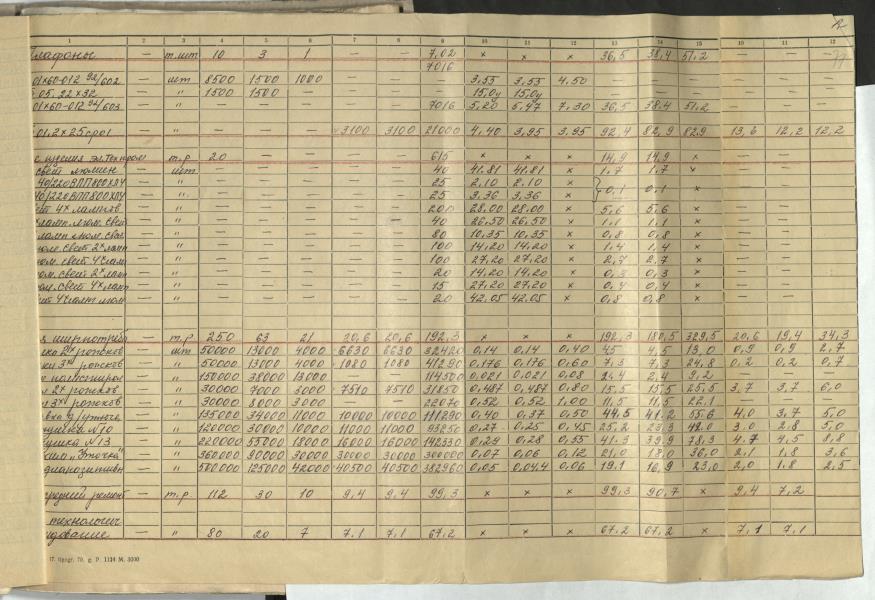 1 2 3 4 5 6 7 8 9 10 11 12 13 14 15 10 11 12
лафоны — т.шт 10 3 1 — — 7,02 × × × 36,5 38,4 51,2
7016
01х60-012 92/602 — шт 8500 1500 1000 — — — 3,55 3,55 4,50 — — — — — —
05.22х32 — " 1500 1500 — — — — 15,04 15,04 — — — — — —
01х60-012 92/603 — " — — — — — 7016 5,20 5,47 7,30 36,5 38,4 51,2 — — —
01.2х25 — " — — — 3100 3100 21000 4,40 3,95 3,95 92,4 82,9 82,9 13,6 12,2 12,2
с изделия эл.техпром — т.р 20 — — — — 615 × × × 14,9 14,9 × — — —
свет люмин — шт — — — — — 40 41.81 41.81 × 1,7 1,7 ×
40/220 ВПП800ХЛ4 — " — — — — — 25 2,10 2,10 × 0,1 0,1 ×
40/220 ВПП800ХЛ4 — " — — — — — 25 3,36 3,36 ×
4х лампов — " — — — — — 200 28.00 28.00 × 5,6 5,6 ×
ламп. люм. свет — " — — — — — 40 26,50 26,50 × 1,1 1,1 ×
ламп люм. свет — " — — — — — 80 10,35 10,35 × 0,8 0,8 ×
люм. свет 2х ламп — " — — — — — 100 14,20 14,20 × 1,4 1,4 ×
люм. свет 4х ламп — " — — — — — 100 27,20 27,20 × 2,7 2,7 ×
юм. свет 2х ламп — " — — — — — 20 14,20 14,20 × 0,3 0,3 ×
ом. свет 4х ламп — " — — — — — 15 27,20 27,20 × 0,4 0,4 ×
4х ламп люм — " — — — — — 20 42.05 42.05 × 0,8 0,8 ×
ширпотреба — т.р 250 63 21 20,6 20,6 192,3 × × × 192,3 180,5 329,5 20,6 19,4 34,3
2х рожков — шт 50000 13000 4000 6630 6630 32420 0,14 0,14 0,40 45 4,5 13,0 0,9 0,9 2,7
3х рожков — " 50000 13000 4000 1080 1080 41290 0,176 0,176 0,60 7,3 7,3 24,8 0,2 0,2 0,7
— " 150000 38000 13000 — — 114500 0,021 0,021 0,08 2,4 2,4 9,2 — — —
2х рожков — " 30000 7000 3000 7510 7510 31850 0,487 0,487 0,80 15,5 15,5 25,5 3,7 3,7 6,0
3х рожков — " 30000 8000 3000 — — 22070 0,52 0,52 1,00 11,5 11,5 22,1 — — —
— " 135000 34000 11000 10000 10000 111290 0,40 0,37 0,50 44,5 41,2 55,6 4,0 3,7 5,0
ушка N10 — " 120000 30000 10000 11000 11000 93250 0,27 0,25 0,45 25,2 23,3 42,0 3,0 2,8 5,0
ушка N13 — " 220000 55000 18000 16000 16000 142330 0,29 0,28 0,55 41,3 39,9 78,3 4,7 4,5 8,8
"Ёлочка" — " 360000 90000 30000 30000 30000 300000 0,07 0,06 0,12 21,0 18,0 36,0 2,1 1,8 3,6
диапозитивн — " 500000 125000 42000 40500 40500 382960 0,05 0,044 0,06 19,1 16,9 23,0 2,0 1,8 2,5
средний ремонт — т.р 112 30 10 9,4 9,4 99,3 × × × 99,3 90,7 × 9,4 7,2
технологич
удование — " 80 20 7 7,1 7,1 67,2 × × × 67,2 67,2 × 7,1 7,1
17. tipogr. 79. g. P. 1124 M. 3000